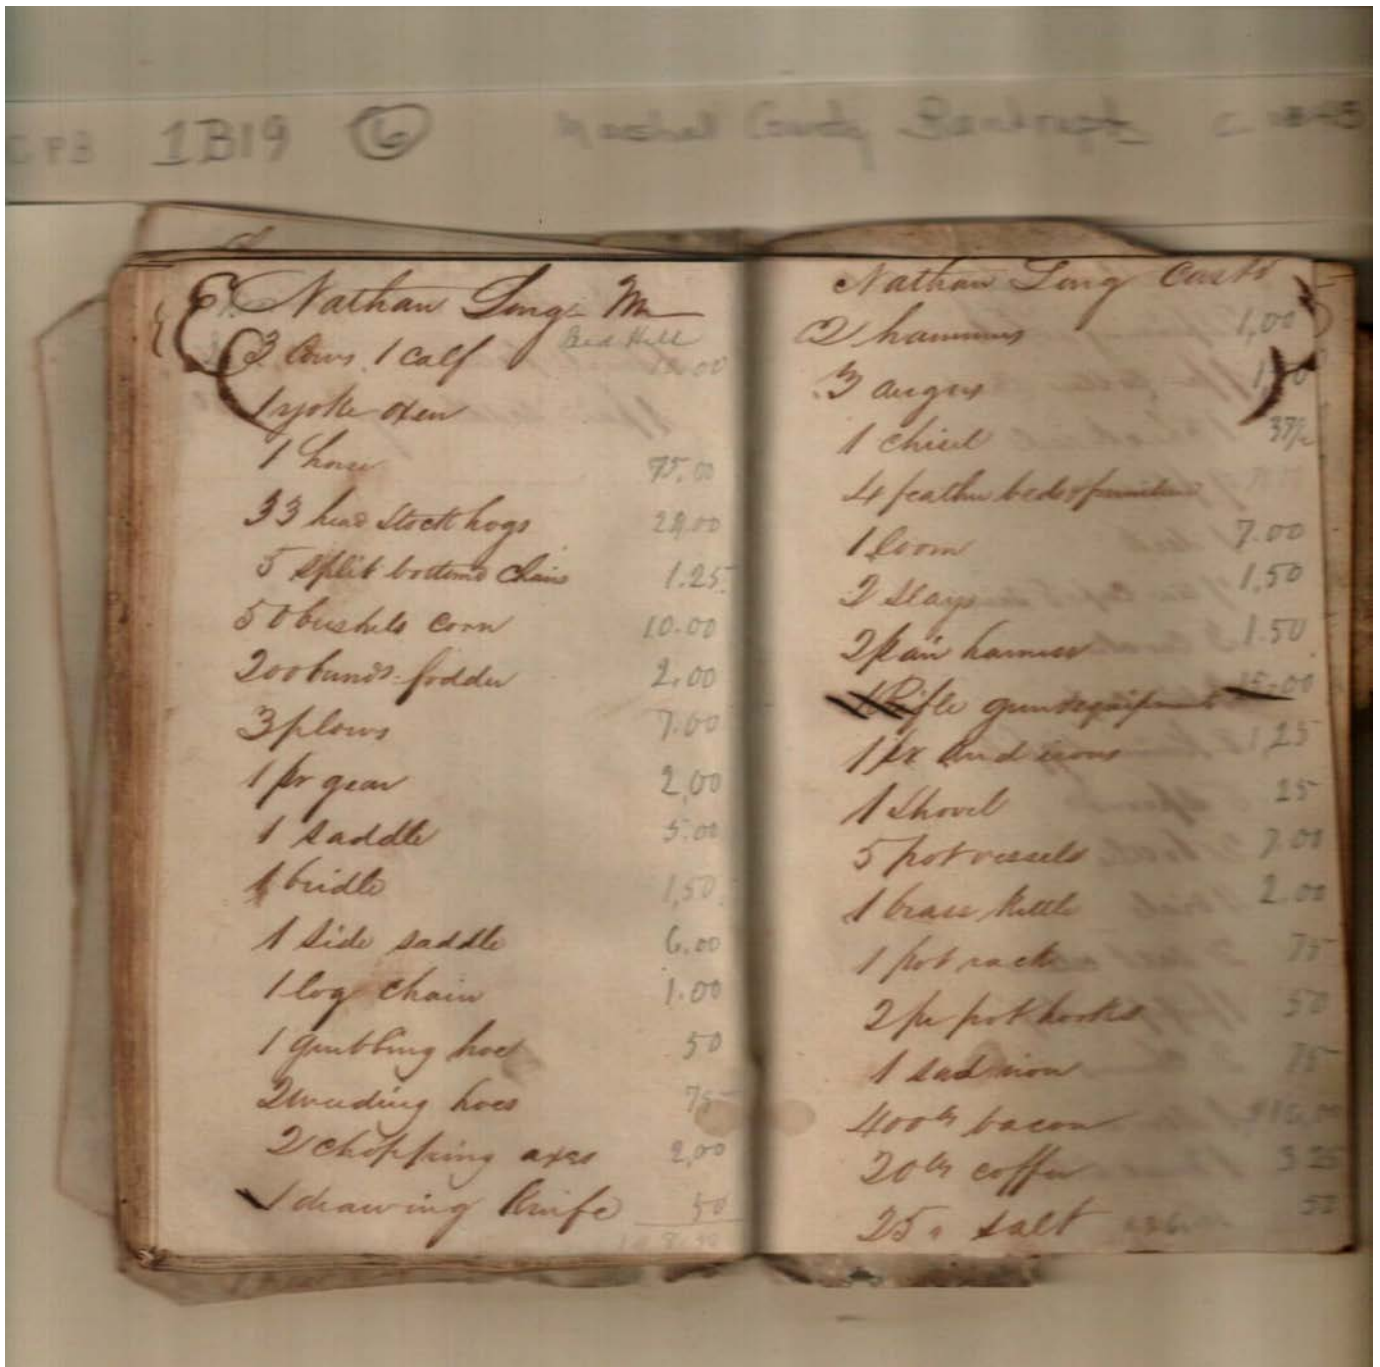 1B19 6 Mashel County Bankrupt
Nathan Long
Red Hill
3 Cows, 1 calf
1 yoke oxen
1 horse 75.00
33 head stock hogs 22.00
5 split bottomd chairs 1.25
50 bushels corn 10.00
200 bunds. fodder 2.00
3 plows 7.00
1 pr gear 2,00
1 saddle 5.00
1 bridle 1,50
1 side saddle 6.00
1 log chain 1.00
1 grubbing hoe 50
2 weeding hoes 75
2 chopping axes 2,00
1 drawing knife 50
Nathan Long
2 hammers 1,00
3 augers
1 chisel 37½
4 feather beds & furniture
1 loom 7.00
2 slays 1,50
2 pair harness 1.50
1 Rifle gun & equipments 15.00
1 pr And irons 1,25
1 shovel 25
5 pot vessels 7.00
1 brass kettle 2.00
1 pot rack 75
2 pr pot hooks 50
1 sad iron 75
400 lbs bacon
20 lbs coffee 3 25
25 " salt 50